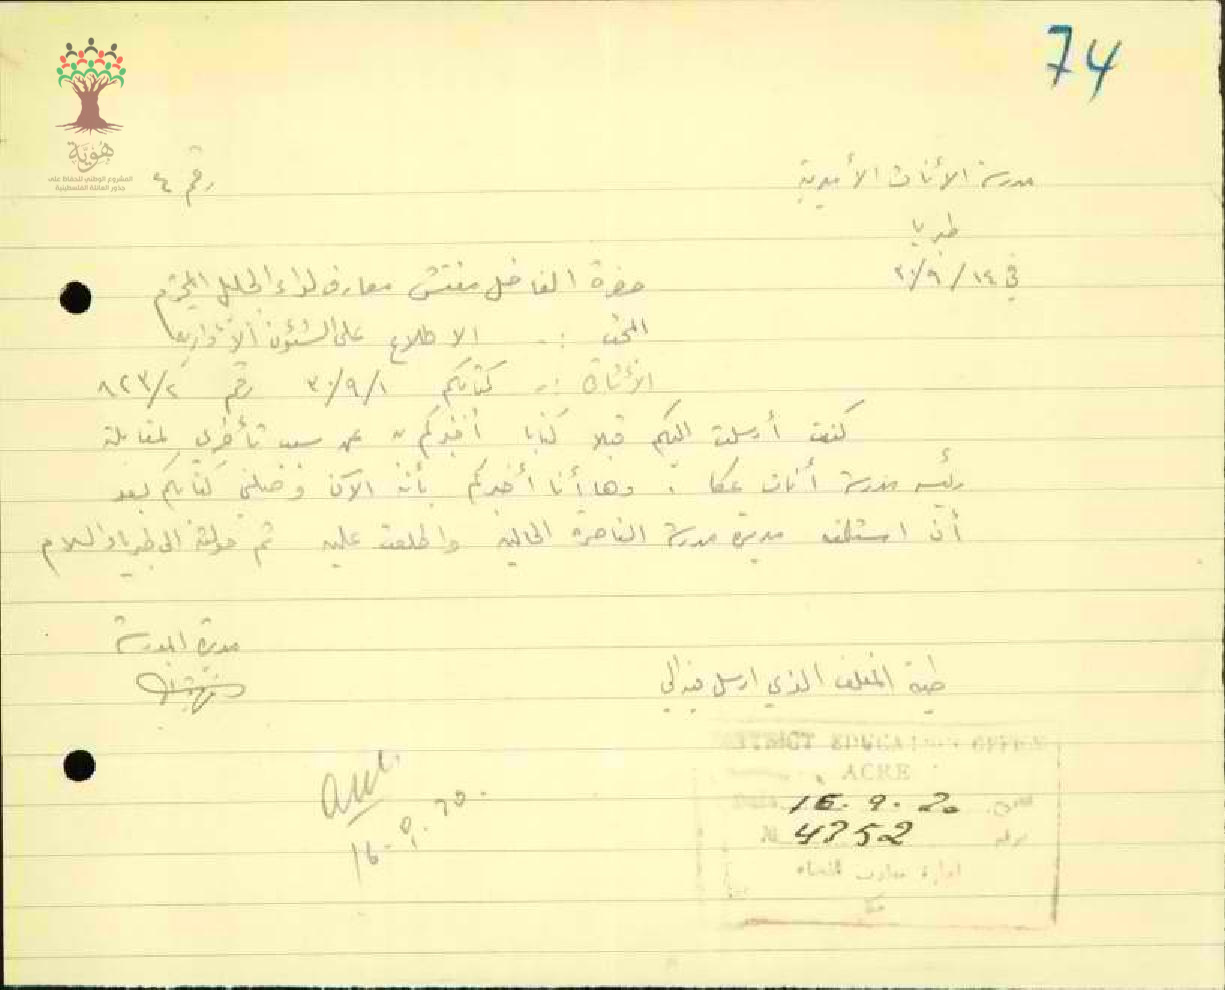 74
هُوِيَّة
المشروع الوطني للحفاظ على
جذور العائلة الفلسطينية
رقم ٤
مدرسة الأناث الأميرية
طبريا
في ١٤/٩/٣٠
حضرة الفاضل مفتش معارف لواء الجليل المحترم
البحث :- الاطلاع على الشؤون الأدارية
الأشارة :- كتابكم ٣٠/٩/١ رقم ٨٢٣/٢
كنت أرسلت اليكم قبلا كتابا أخبركم به عن سبب تأخري لمقابلة
رئيسة مدرسة أناث عكا ، وها أنا أخبركم بأنه الآن وصلني كتابكم بعد
أن استلمته مديرة مدرسة الناصرة الحالية واطلعت عليه ثم حولته الى طبريا والسلام
مديرة المدرسة
طيه المغلف الذي ارسل فيه الي
DISTRICT EDUCATION OFFICE
ACRE
Date 16.9.30
No 4752
ادارة معارف القضاء
عكا
16.9.30.